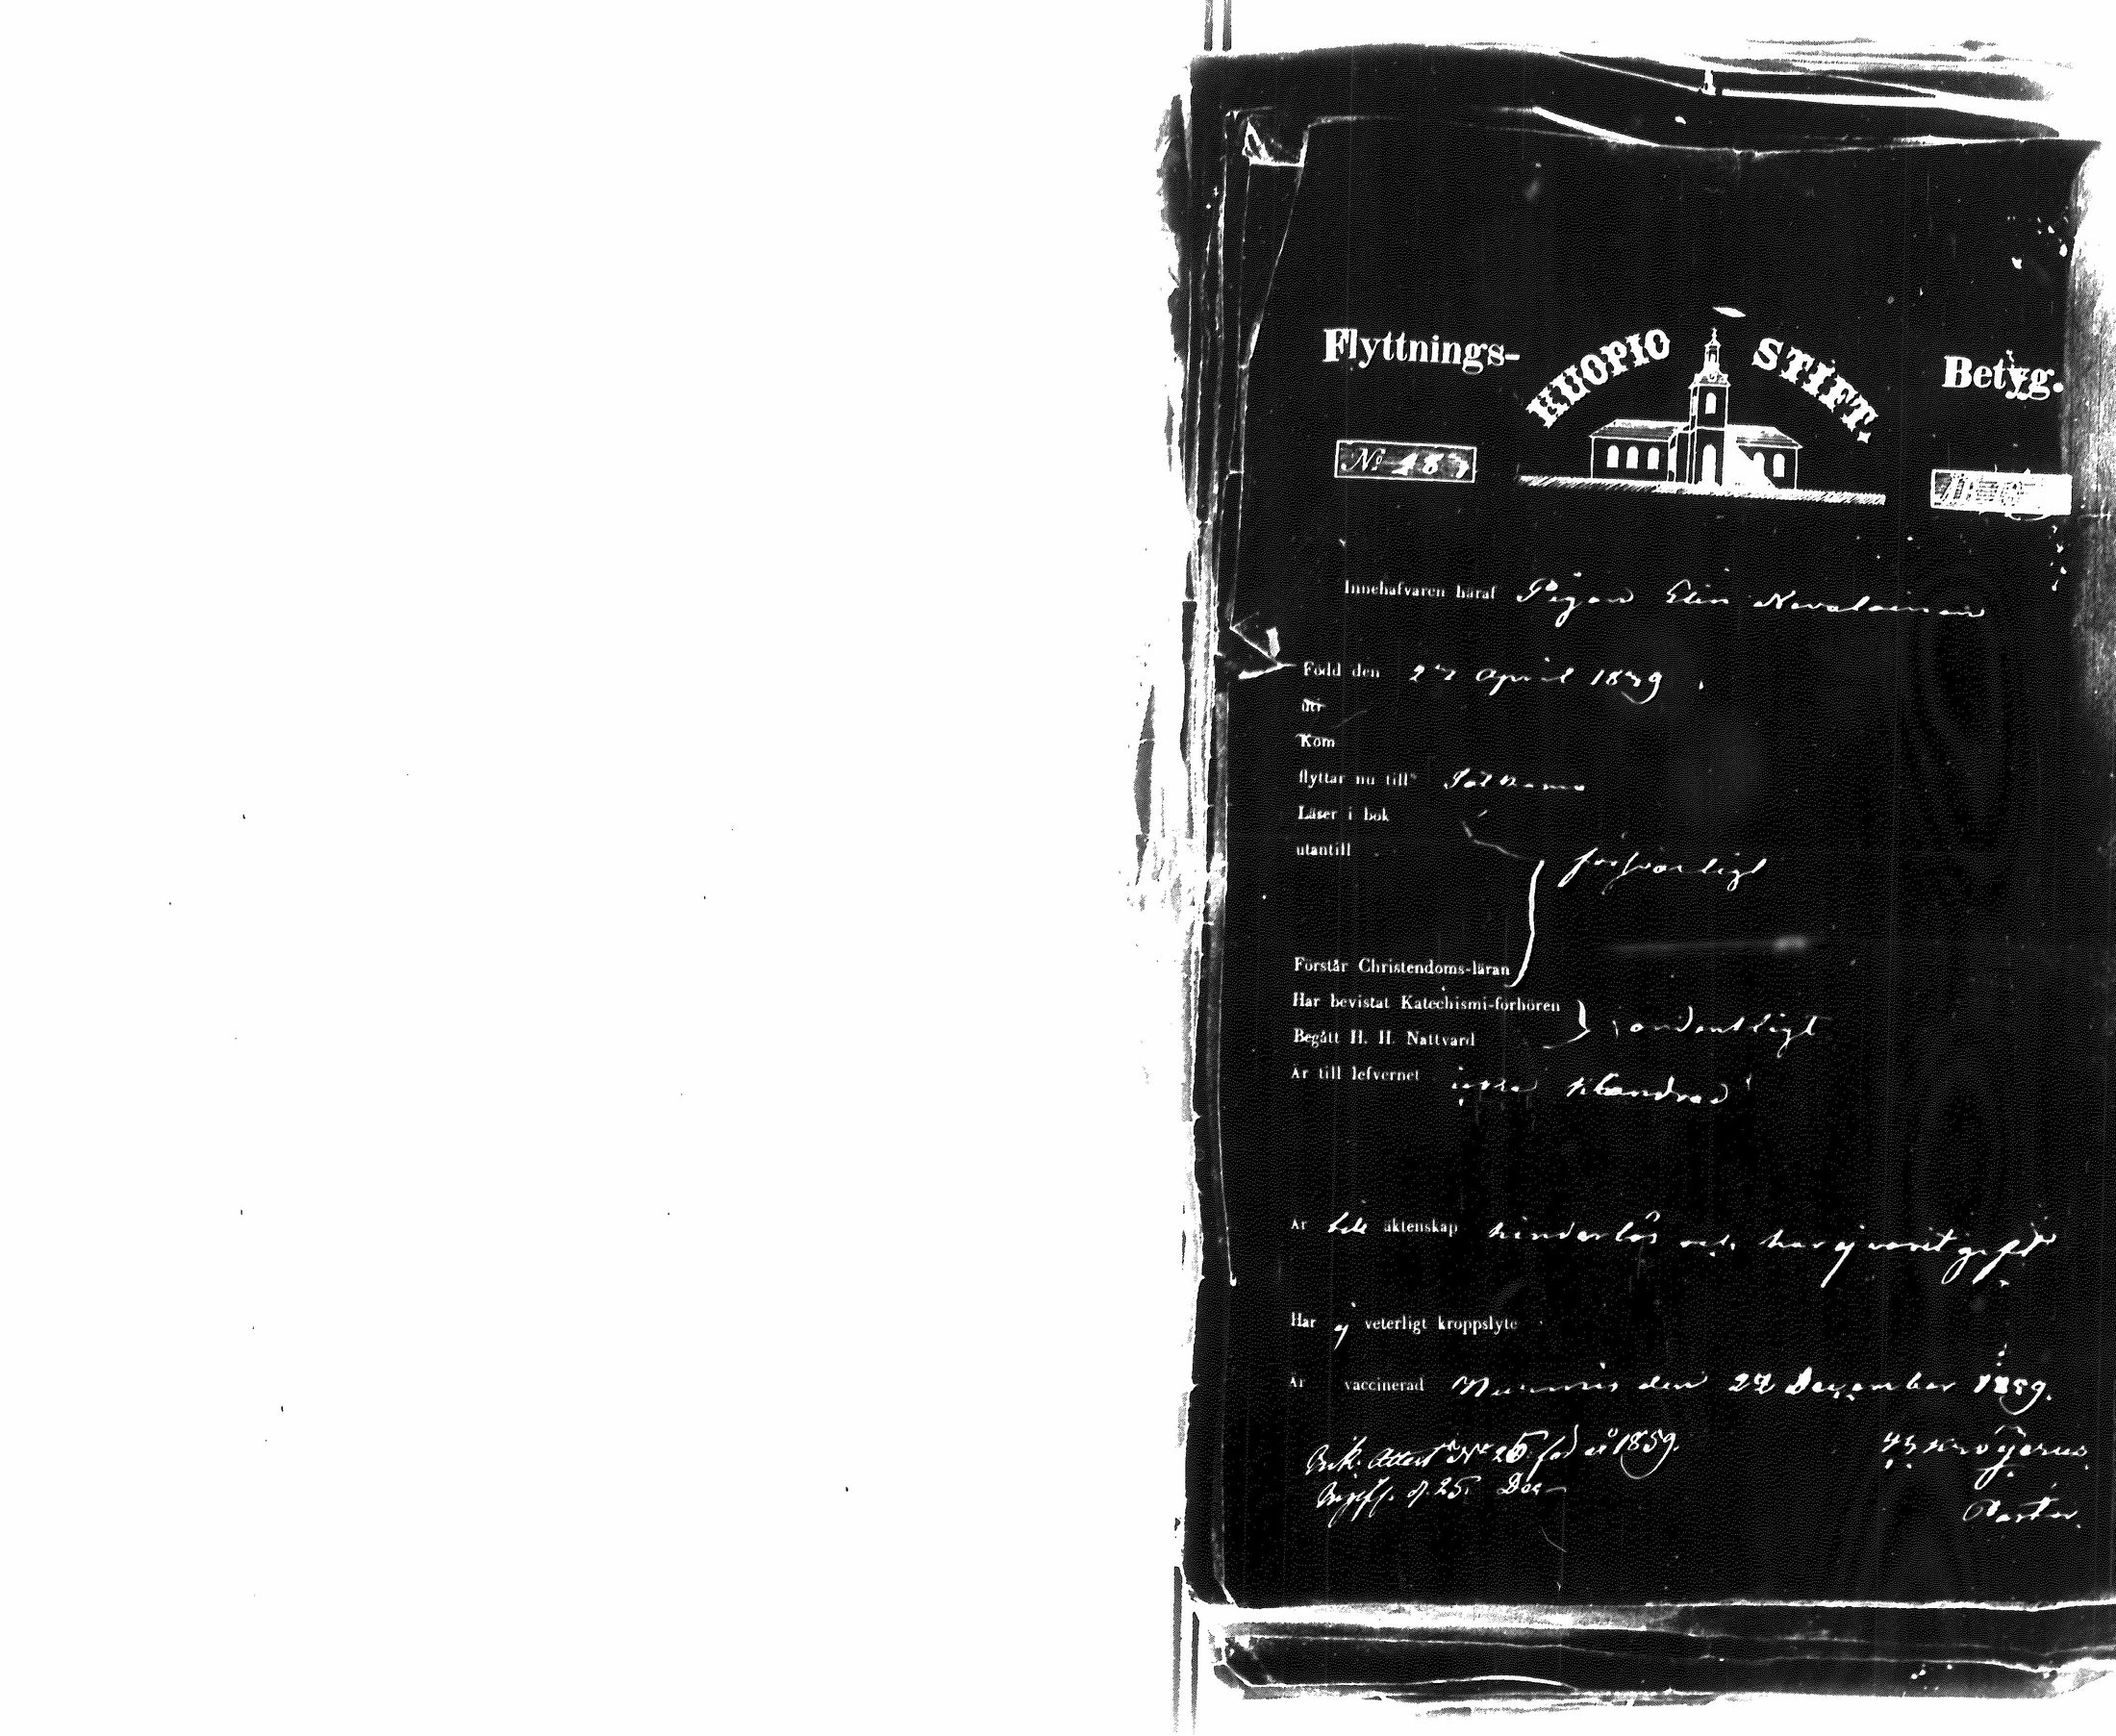 Flyttnings- KUOPIO STIFT. Betyg.
No 487
Innehafvaren häraf Pigan Elin Nevalainen
Född den 27 April 1839.
uti
Kom
flyttar nu till Sotkamo
Läser i bok
utantill försvarligt
Förstår Christendoms-läran
Har bevistat Katechismi-förhören
ordentligt
Begått H. H. Nattvard
Är till lefvernet icke klandrad
Är till äktenskap hinderlös och har ej varit gift
Har ej veterligt kroppslyte
Är vaccinerad Nurmis den 22 December 1859.
Attest No 25 för år 1859.
d. 25 Dec
Krogerus
Pastor.